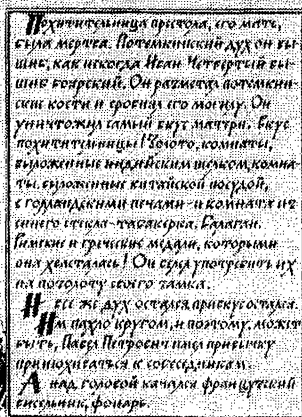 Похитительница престола, его мать,
была мертва. Потемкинский дух он вы-
шиб, как некогда Иван Четвертый вы-
шиб боярский. Он разметал потемкин-
ские кости и сровнял его могилу. Он
уничтожил самый вкус матери. Вкус
похитительницы! Золото, комнаты,
выложенные индийским шелком, комна-
ты, выложенные китайской посудой,
с голландскими печами - и комната из
синего стекла - табакерка. Балаган.
Римские и греческие медали, которыми
она хвасталась! Он велел употребить их
на позолоту своего замка.
И все же дух остался, привкус остался.
Им пахло кругом, и поэтому, может
быть, Павел Петрович имел привычку
принюхиваться к собеседникам.
А над головой качался французский
висельник, фонарь.